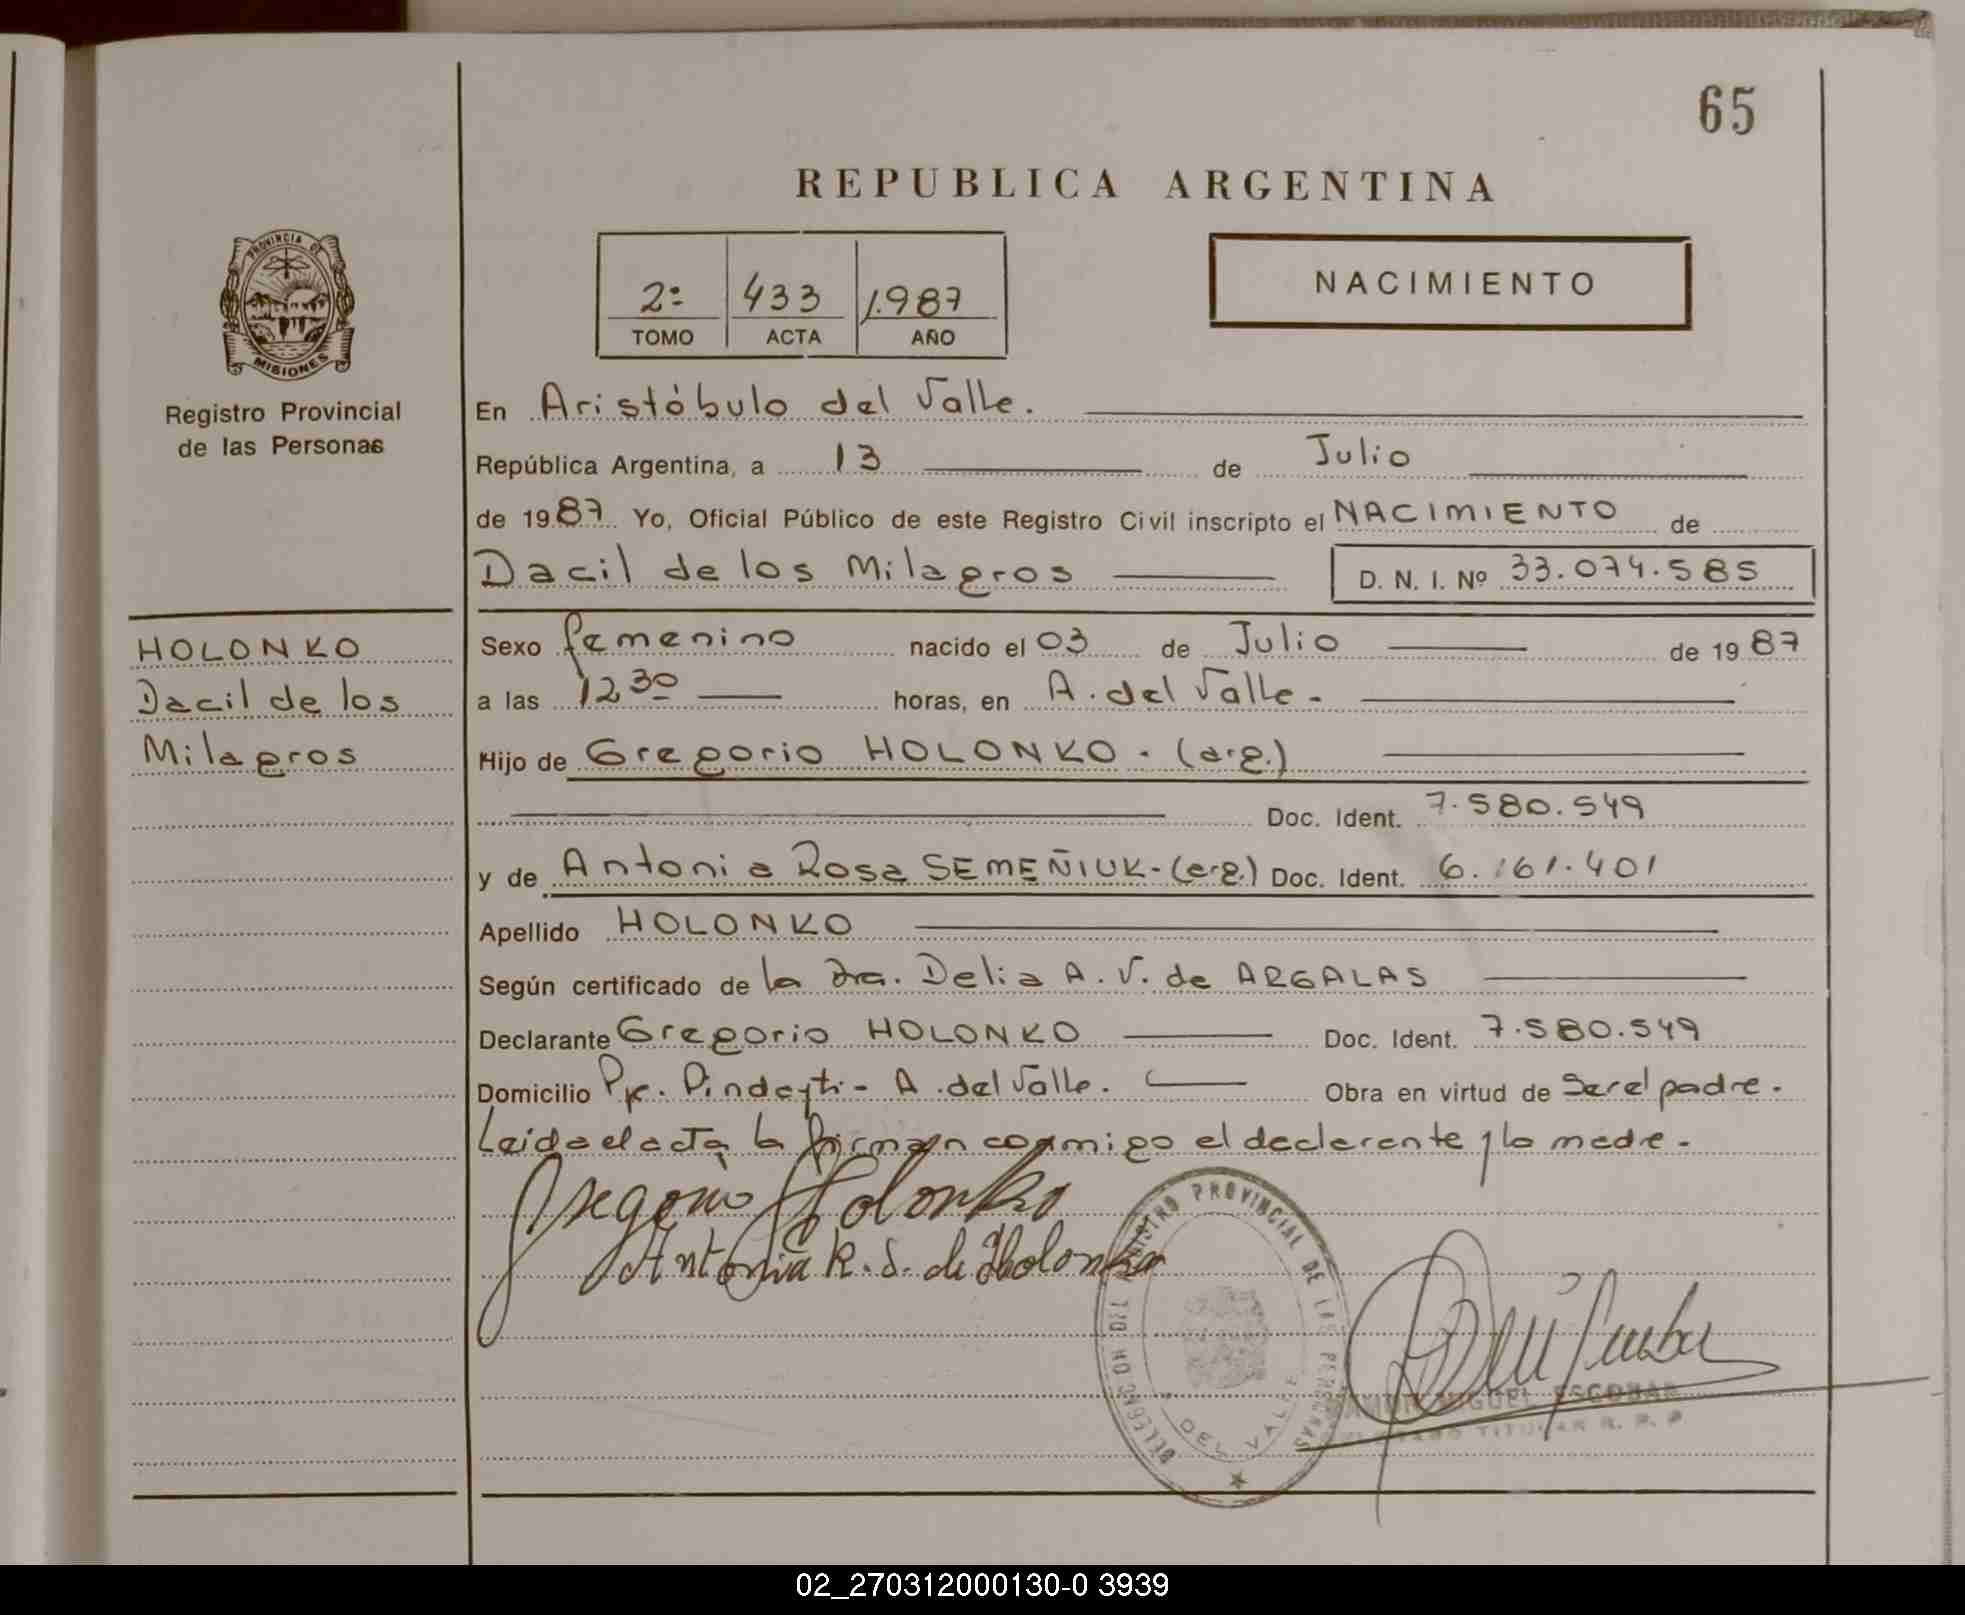 65
REPUBLICA ARGENTINA
PROVINCIA DE
MISIONES
2º 433 1.987
TOMO ACTA AÑO
NACIMIENTO
Registro Provincial
de las Personas
En Aristóbulo del Valle.
República Argentina, a 13 de Julio
de 1987 Yo, Oficial Público de este Registro Civil inscripto el NACIMIENTO de
Dacil de los Milagros D. N. I. Nº 33.074.585
HOLONKO
Dacil de los
Milagros
Sexo femenino nacido el 03 de Julio de 1987
a las 12 30 horas, en A. del Valle.-
Hijo de Gregorio HOLONKO - (arg.)
Doc. Ident. 7.580.549
y de Antonia Rosa SEMEÑIUK-(arg.) Doc. Ident. 6.161.401
Apellido HOLONKO
Según certificado de la Dra. Delia A. V. de ARGALAS
Declarante Gregorio HOLONKO Doc. Ident. 7.580.549
Domicilio Pje. - A. del Valle. Obra en virtud de Ser el padre.
Leida el acta, la firman conmigo el declarante y la madre.-
Gregorio Holonko
Antonia R. S. de Holonko
DELEGACION DEL REGISTRO PROVINCIAL DE LAS PERSONAS
A. DEL VALLE
RAMON MIGUEL ESCOBAR
TITULAR R. P. P
02_270312000130-0 3939